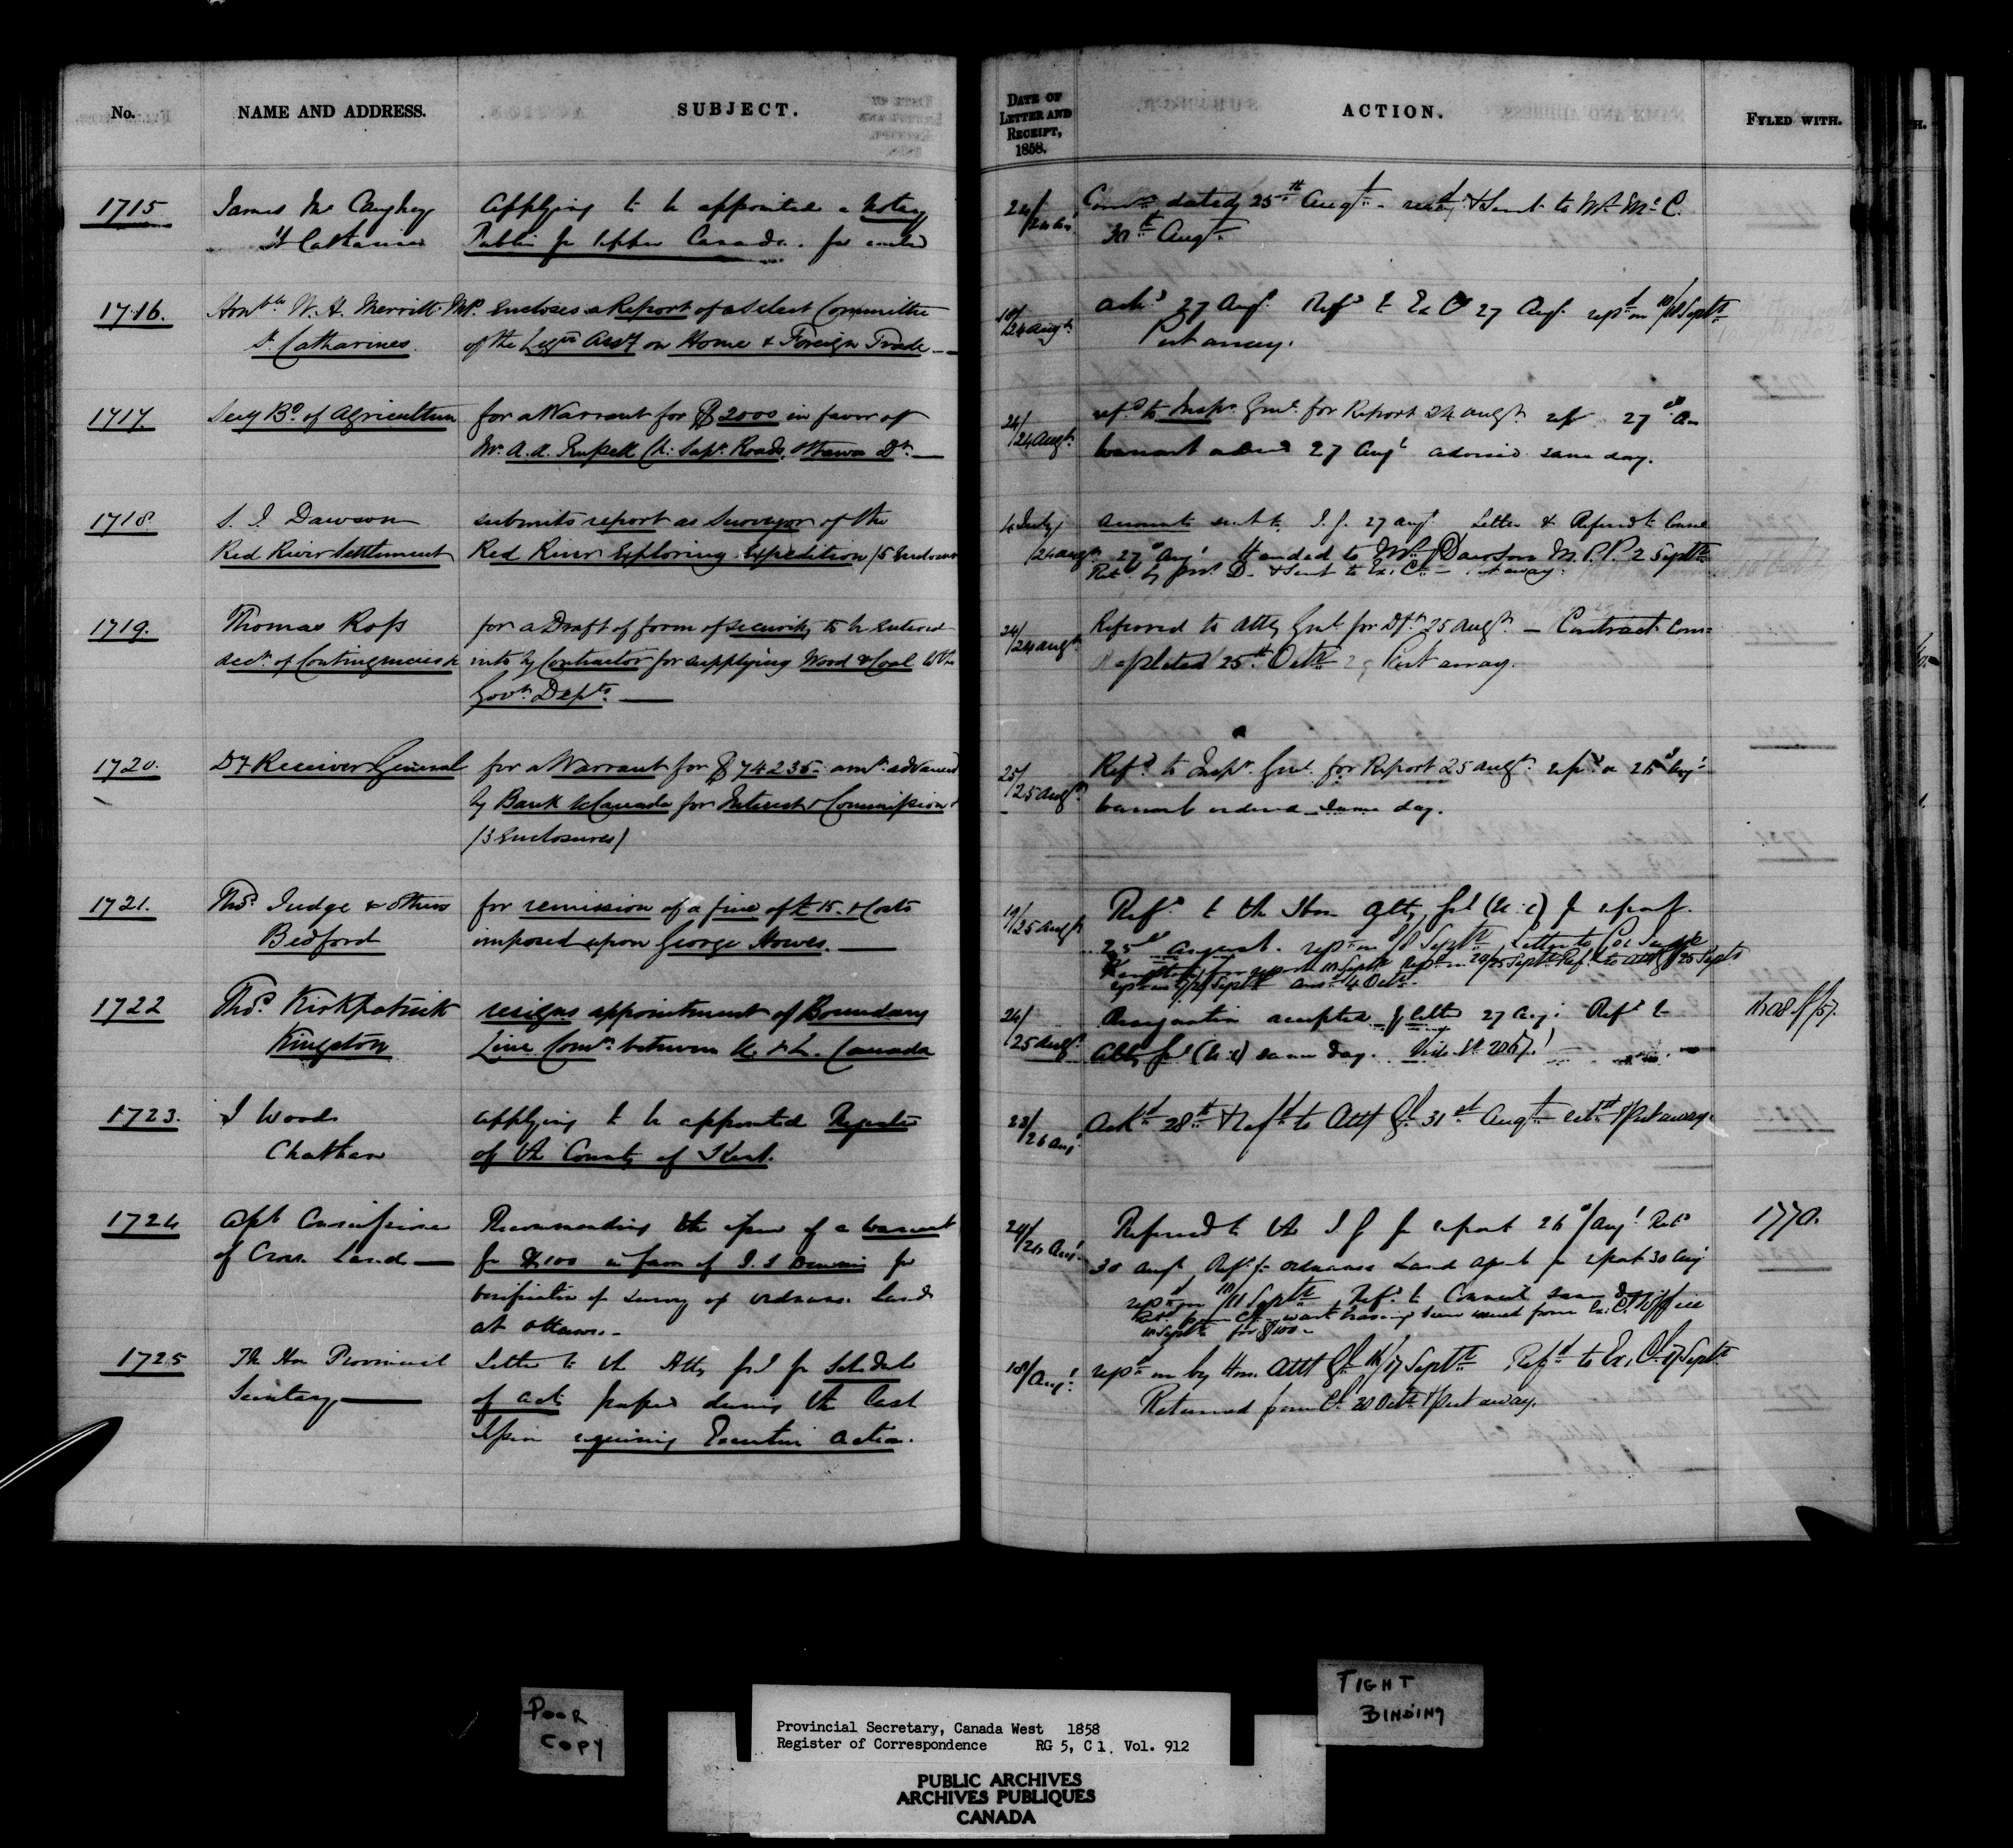 No.
NAME AND ADDRESS.
SUBJECT.
1715
James Mc Caughey
St Catharines
Applying to be appointed a Notary
Public for Upper Canada.
1716.
Honble W. H. Merritt MP.
St. Catharines.
encloses a Report of a Select Committee
of the Legve Assy on Home & Foreign Trade
1717.
Secy Bd of Agriculture
for a Warrant for $2000 in favor of
Mr A. A. Russell Roads, Ottawa
1718.
S. J. Dawson
Red River Settlement
submits report as Surveyor of the
Red River Exploring Expedition
1719.
Thomas Ross
Acct of Contingencies
for a Draft of form of security to be entered
into by Contractor for supplying Wood & Coal
Govt Depts.
1720.
Dy Receiver General
for a Warrant for $74235. amt advanced
by Bank U Canada for Interest & Commission
(3 Enclosures)
1721.
Thos Judge & others
Bedford
for remission of a fine of £15. & Costs
imposed upon George Howes.
1722
Thos Kirkpatrick
Kingston
resigns appointment of Boundary
Line Comr. between U. & L. Canada
1723.
J Woods
Chatham
applying to be appointed Register
of the County of Kent.
1724
Asst Commissioner
of Crown Lands
Recommending the issue of a Warrant
for $100 in favor of for
verification of survey of ordnance Lands
at Ottawa.
1725
The Hon Provincial
Secretary
Letter to the Atty Genl for Schedule
of acts passed during the last
Session requiring Executive action.
DATE OF
LETTER AND
RECEIPT,
1858.
ACTION.
FYLED WITH.
24/
dated 25th Augt. & sent to Mr McC.
30th Augt.
24 augt.
ackd 27 Augt. Refd to Ex C 27 Augt. repd on Septr
Put away.
24/
/24 augt.
refd to Inspr Genl for Report 24 augt. 27
Warrant 27 Augt advised same day.
/24 augt.
sent to I. G. 27 augt. Letter
27 Augt Handed to Mr Dawson M.P.P. 2 Septr
& sent to Ex. Cl. Put away.
24/
/24 augt.
Referred to Atty Genl for Dft 25 augt. — Contract Com=
pleted 25th Octr Put away.
25/
/25 augt.
Refd to Inspr Genl for Report 25 augt. Augt
Warrant ordered same day.
19/25 augt.
Refd to the Hon Atty Genl (U.C) for report.
25 August. repd on Septr Letter to Co. Judge
24/
/25 augt.
Resignation accepted letter 27 Augt Refd to
Atty Genl (U.C) same day. Vide No 2067!
23/
/26 augt.
Ackd 28th & refd to Atty Gl 31st Augt Put away.
24/26 Augt.
Referred to the I G for report 26 Augt
30 Augt Refd to Ordnance Land agent for report 30 Augt
Septr Refd to
Septr for $100
1770.
18/Augt.
repd on by Hon. Atty Gl 16/17 Septr Refd to Ex. Cl. 17 Septr
Returned from Cl. 20 Octr & Put away.
POOR
COPY
TIGHT
BINDING
Provincial Secretary, Canada West 1858
Register of Correspondence RG 5, C 1, Vol. 912
PUBLIC ARCHIVES
ARCHIVES PUBLIQUES
CANADA